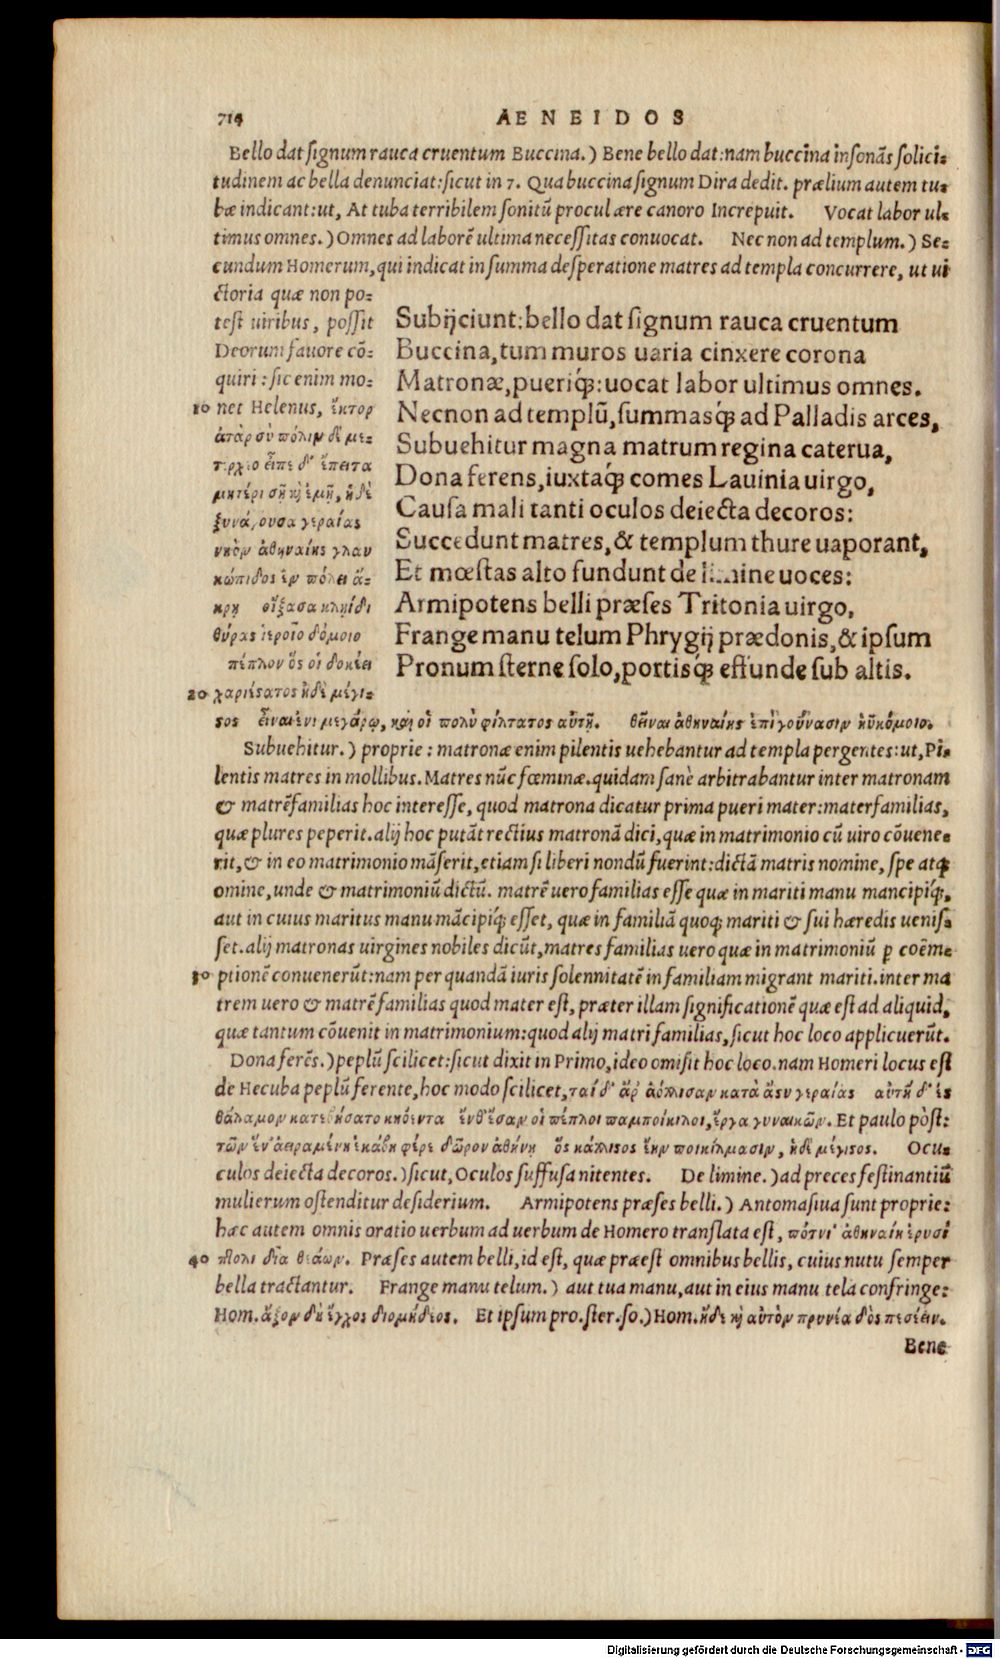 714 AENEIDOS
Bello dat signum rauca cruentum Buccina.) Bene bello dat:nam buccina insonãs solici=
tudinem ac bella denunciat:sicut in 7. Qua buccina signum Dira dedit. prælium autem tu=
bæ indicant:ut, At tuba terribilem sonitũ procul ære canoro Increpuit. Vocat labor ul=
timus omnes.) Omnes ad laborẽ ultima necessitas conuocat. Nec non ad templum.) Se=
cundum Homerum, qui indicat in summa desperatione matres ad templa concurrere, ut ui
ctoria quæ non po=
test uiribus, possit
Deorum fauore cõ=
quiri: sic enim mo=
10 net Helenus, ἕκτορ
ἀτὰρ σὺ πόλιν δὲ με=
τέρχεο εἰπὲ δ' ἔπειτα
μητέρι σῇ καὶ ἐμῇ, ἡ δὲ
ξυνάγουσα γεραίας
νηὸν ἀθηναίης γλαυ
κώπιδος ἐν πόλει ἄ=
κρῃ οἴξασα κληίδι
θύρας ἱεροῖο δόμοιο
πέπλον ὅς οἱ δοκέει
20 χαριέστατος ἠδὲ μέγι=
στος εἶναι ἐνὶ μεγάρῳ, καί οἱ πολὺ φίλτατος αὐτῇ. θεῖναι ἀθηναίης ἐπὶ γούνασιν ἠϋκόμοιο.
Subijciunt:bello dat signum rauca cruentum
Buccina,tum muros uaria cinxere corona
Matronæ,pueriq́;:uocat labor ultimus omnes.
Necnon ad templũ,summasq́; ad Palladis arces,
Subuehitur magna matrum regina caterua,
Dona ferens,iuxtaq́; comes Lauinia uirgo,
Causa mali tanti oculos deiecta decoros:
Succedunt matres,& templum thure uaporant,
Et mœstas alto fundunt de limine uoces:
Armipotens belli præses Tritonia uirgo,
Frange manu telum Phrygij prædonis,& ipsum
Pronum sterne solo,portisq́; effunde sub altis.
Subuehitur.) proprie: matronæ enim pilentis uehebantur ad templa pergentes:ut,Pi=
lentis matres in mollibus. Matres nũc fœminæ.quidam sanè arbitrabantur inter matronam
& matrẽfamilias hoc interesse, quod matrona dicatur prima pueri mater:materfamilias,
quæ plures peperit.alij hoc putãt rectius matronã dici,quæ in matrimonio cũ uiro cõuene=
rit,& in eo matrimonio mãserit,etiam si liberi nondũ fuerint:dictã matris nomine, spe atq;
omine,unde & matrimoniũ dictũ. matrẽ uero familias esse quæ in mariti manu mancipiq́;,
aut in cuius maritus manu mãcipiq́; esset, quæ in familiã quoq; mariti & sui hæredis uenis=
set.alij matronas uirgines nobiles dicũt,matres familias uero quæ in matrimoniũ ꝑ coẽm=
30 ptionẽ conuenerũt:nam per quandã iuris solennitatẽ in familiam migrant mariti.inter ma
trem uero & matrẽfamilias quod mater est, præter illam significationẽ quæ est ad aliquid,
quæ tantum cõuenit in matrimonium:quod alij matri familias,sicut hoc loco applicuerũt.
Dona ferẽs.) peplũ scilicet:sicut dixit in Primo,ideo omisit hoc loco.nam Homeri locus est
de Hecuba peplũ ferente,hoc modo scilicet, ταὶ δ' ἄρ' ἀόλλισαν κατὰ ἄστυ γεραίας αὐτὴ δ' ἐς
θάλαμον κατεβήσατο κηόεντα ἔνθ' ἔσαν οἱ πέπλοι παμποίκιλοι, ἔργα γυναικῶν. Et paulo pòst:
τῶν ἕν' ἀειραμένη ἑκάβη φέρε δῶρον ἀθήνῃ ὃς κάλλιστος ἔην ποικίλμασιν, ἠδὲ μέγιστος. Ocu=
culos deiecta decoros.) sicut, Oculos suffusa nitentes. De limine.) ad preces festinantiũ
mulierum ostenditur desiderium. Armipotens præses belli.) Antomasiua sunt proprie:
hæc autem omnis oratio uerbum ad uerbum de Homero translata est, πότνι' ἀθηναίη ἐρυσί
40 πτολι δῖα θεάων. Præses autem belli,id est, quæ præest omnibus bellis, cuius nutu semper
bella tractantur. Frange manu telum.) aut tua manu,aut in eius manu tela confringe:
Hom. ἄξον δὴ ἔγχος διομήδεος. Et ipsum pro.ster.so.) Hom. ἠδὲ καὶ αὐτὸν πρηνέα δὸς πεσέειν.
Bene
Digitalisierung gefördert durch die Deutsche Forschungsgemeinschaft - DFG